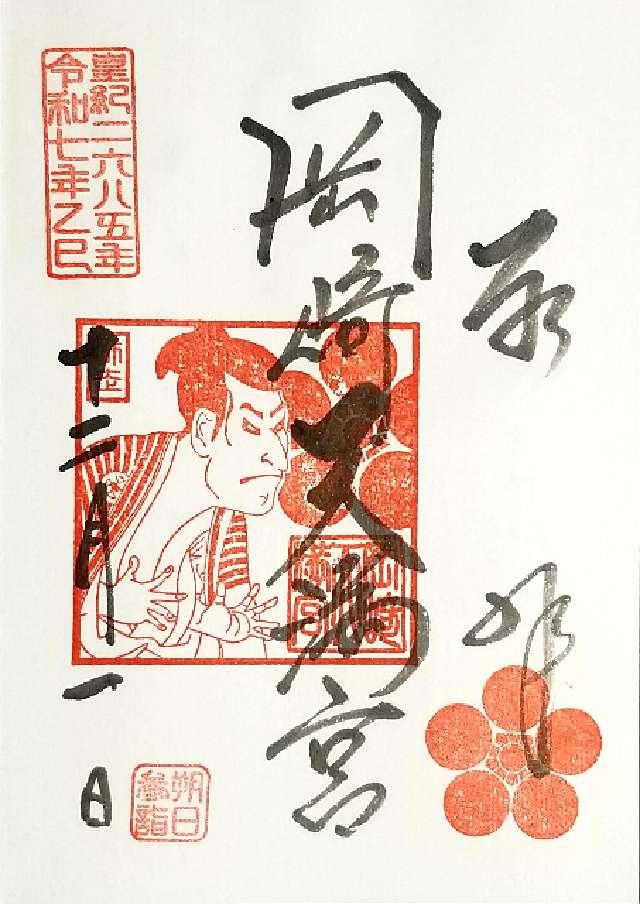 奉拝
岡崎天満宮
皇紀二六八五年
令和七年乙巳
師走
十二月一日
朔日
参詣